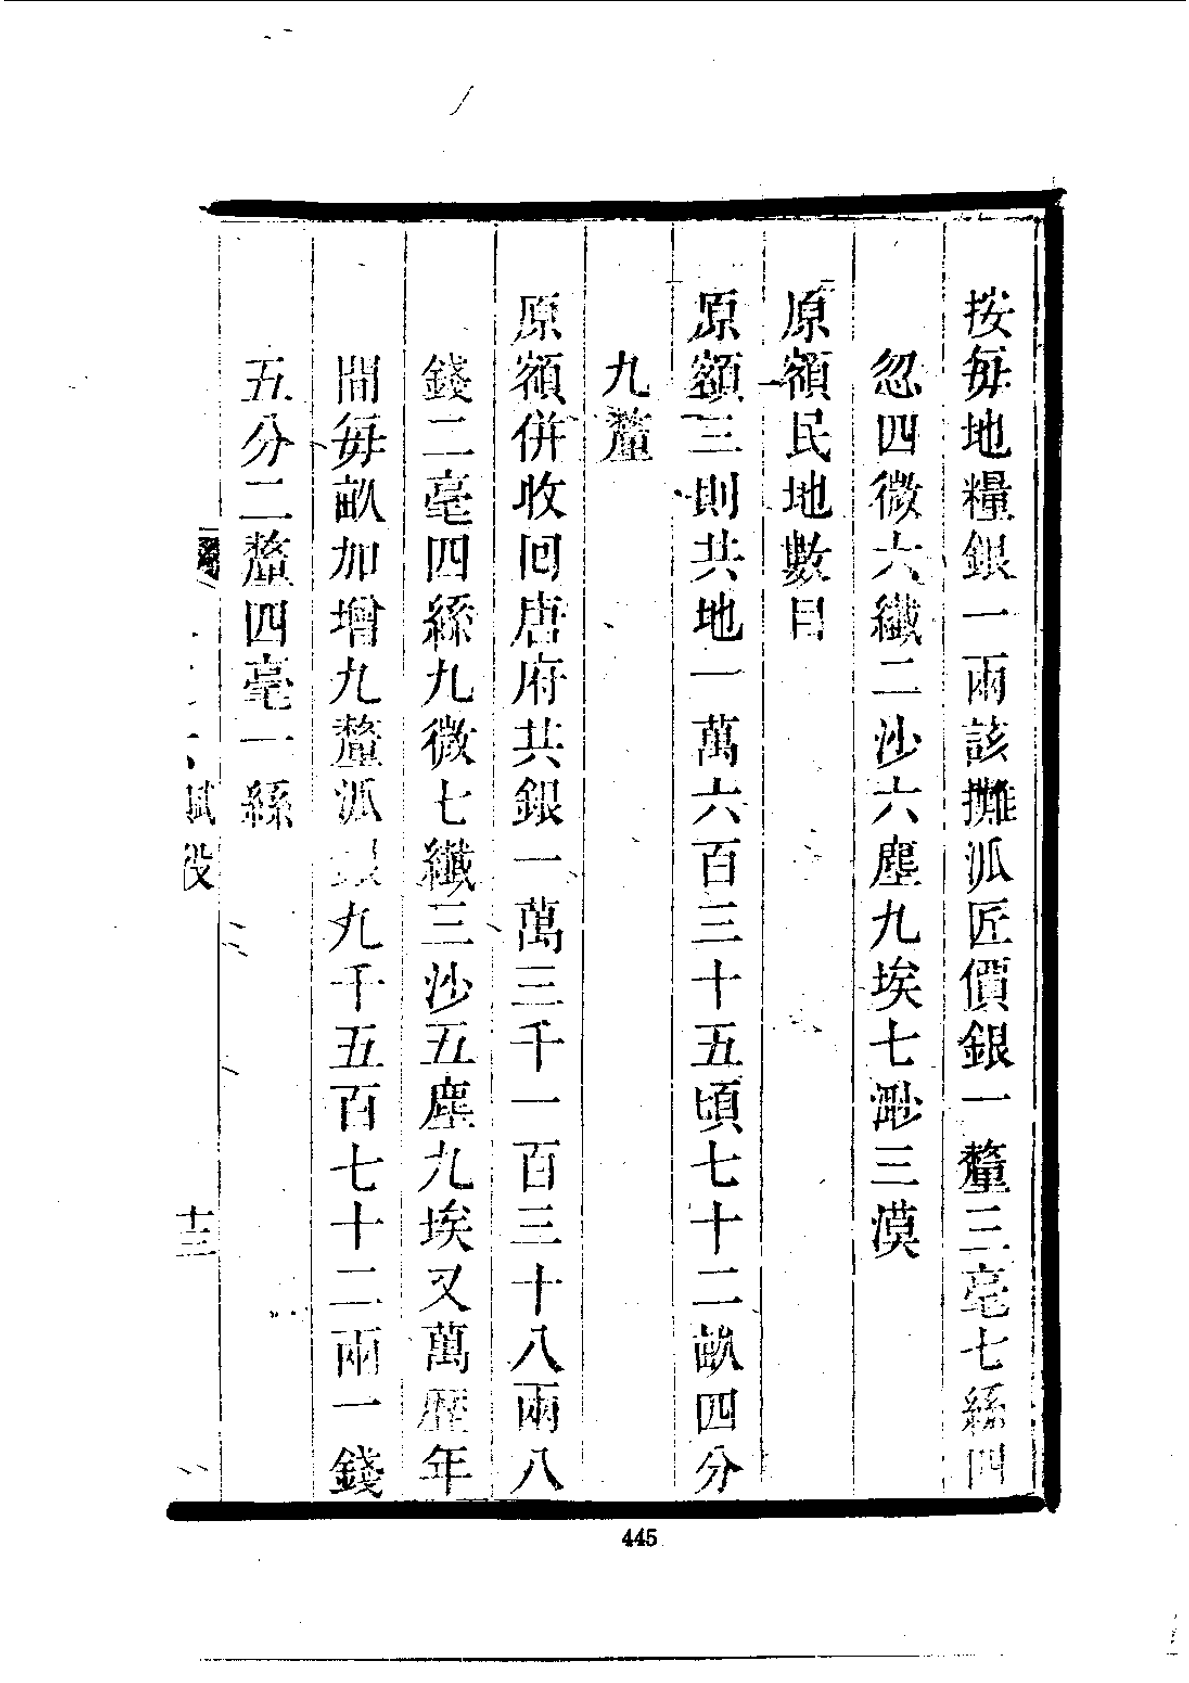 按每地糧銀一兩該攤派匠價銀一釐三毫七絲四
忽四微六纖二沙六塵九埃七渺三漠
原額民地數目
原額三則共地一萬六百三十五頃七十二畝四分
九釐
原額併收回唐府共銀一萬三千一百三十八兩八
錢二毫四絲九微七纖三沙五塵九埃又萬歷年
間每畝加增九釐派九千五百七十二兩一錢
五分二釐四毫一絲
賦役
十三
445